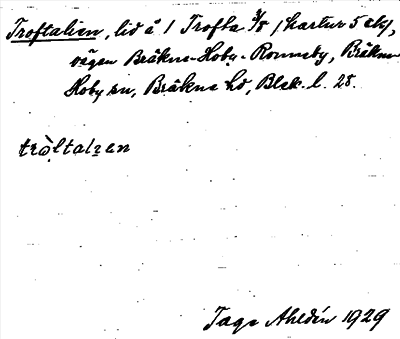 Troftalien, lid å 1 Trofta 3/8 (kartur 5 ek),
vägen Bräkne-Hoby-Ronneby, Bräkne-
Hoby sn, Bräkne hd, Blek. l. 28.
tròltalien
Tage Ahldén 1929